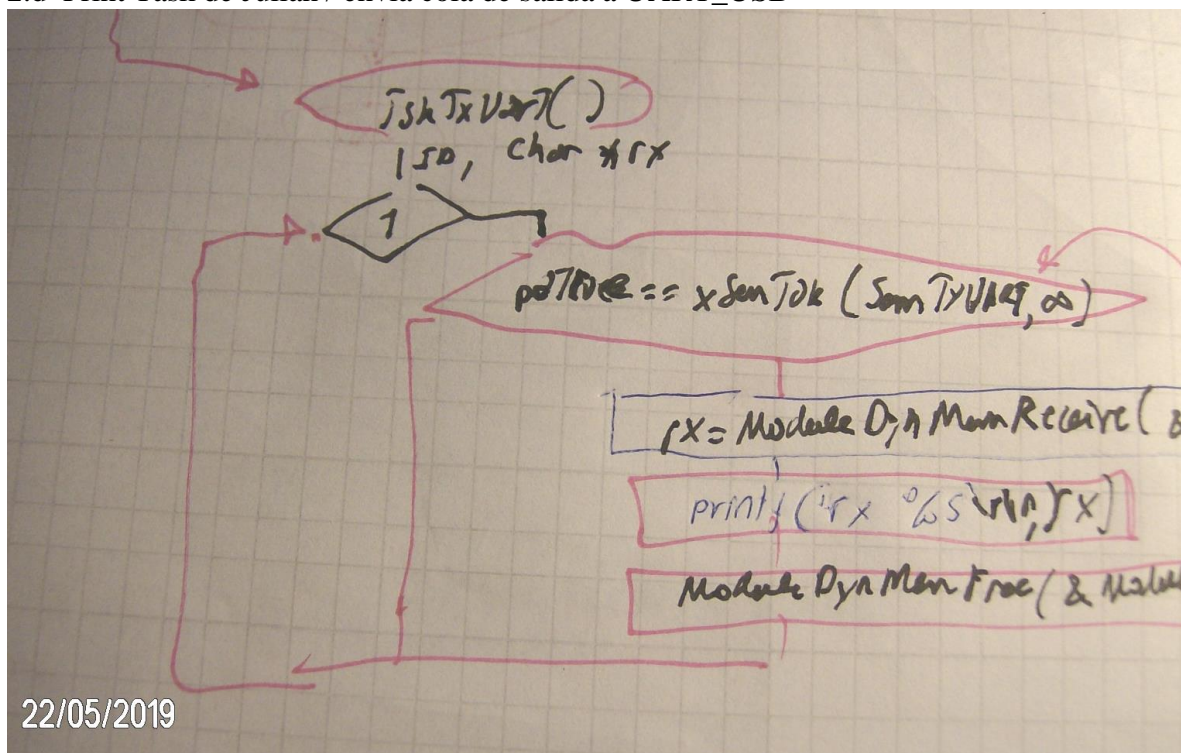 TskTxUarT( )
150, Char *rx
1
pdTRUE == xSemTak ( SemTxUART, ∞ )
rx = ModuleDynMemReceive (
printf ("rx %s \r\n", rx)
ModuleDynMemFree ( & Module
22/05/2019